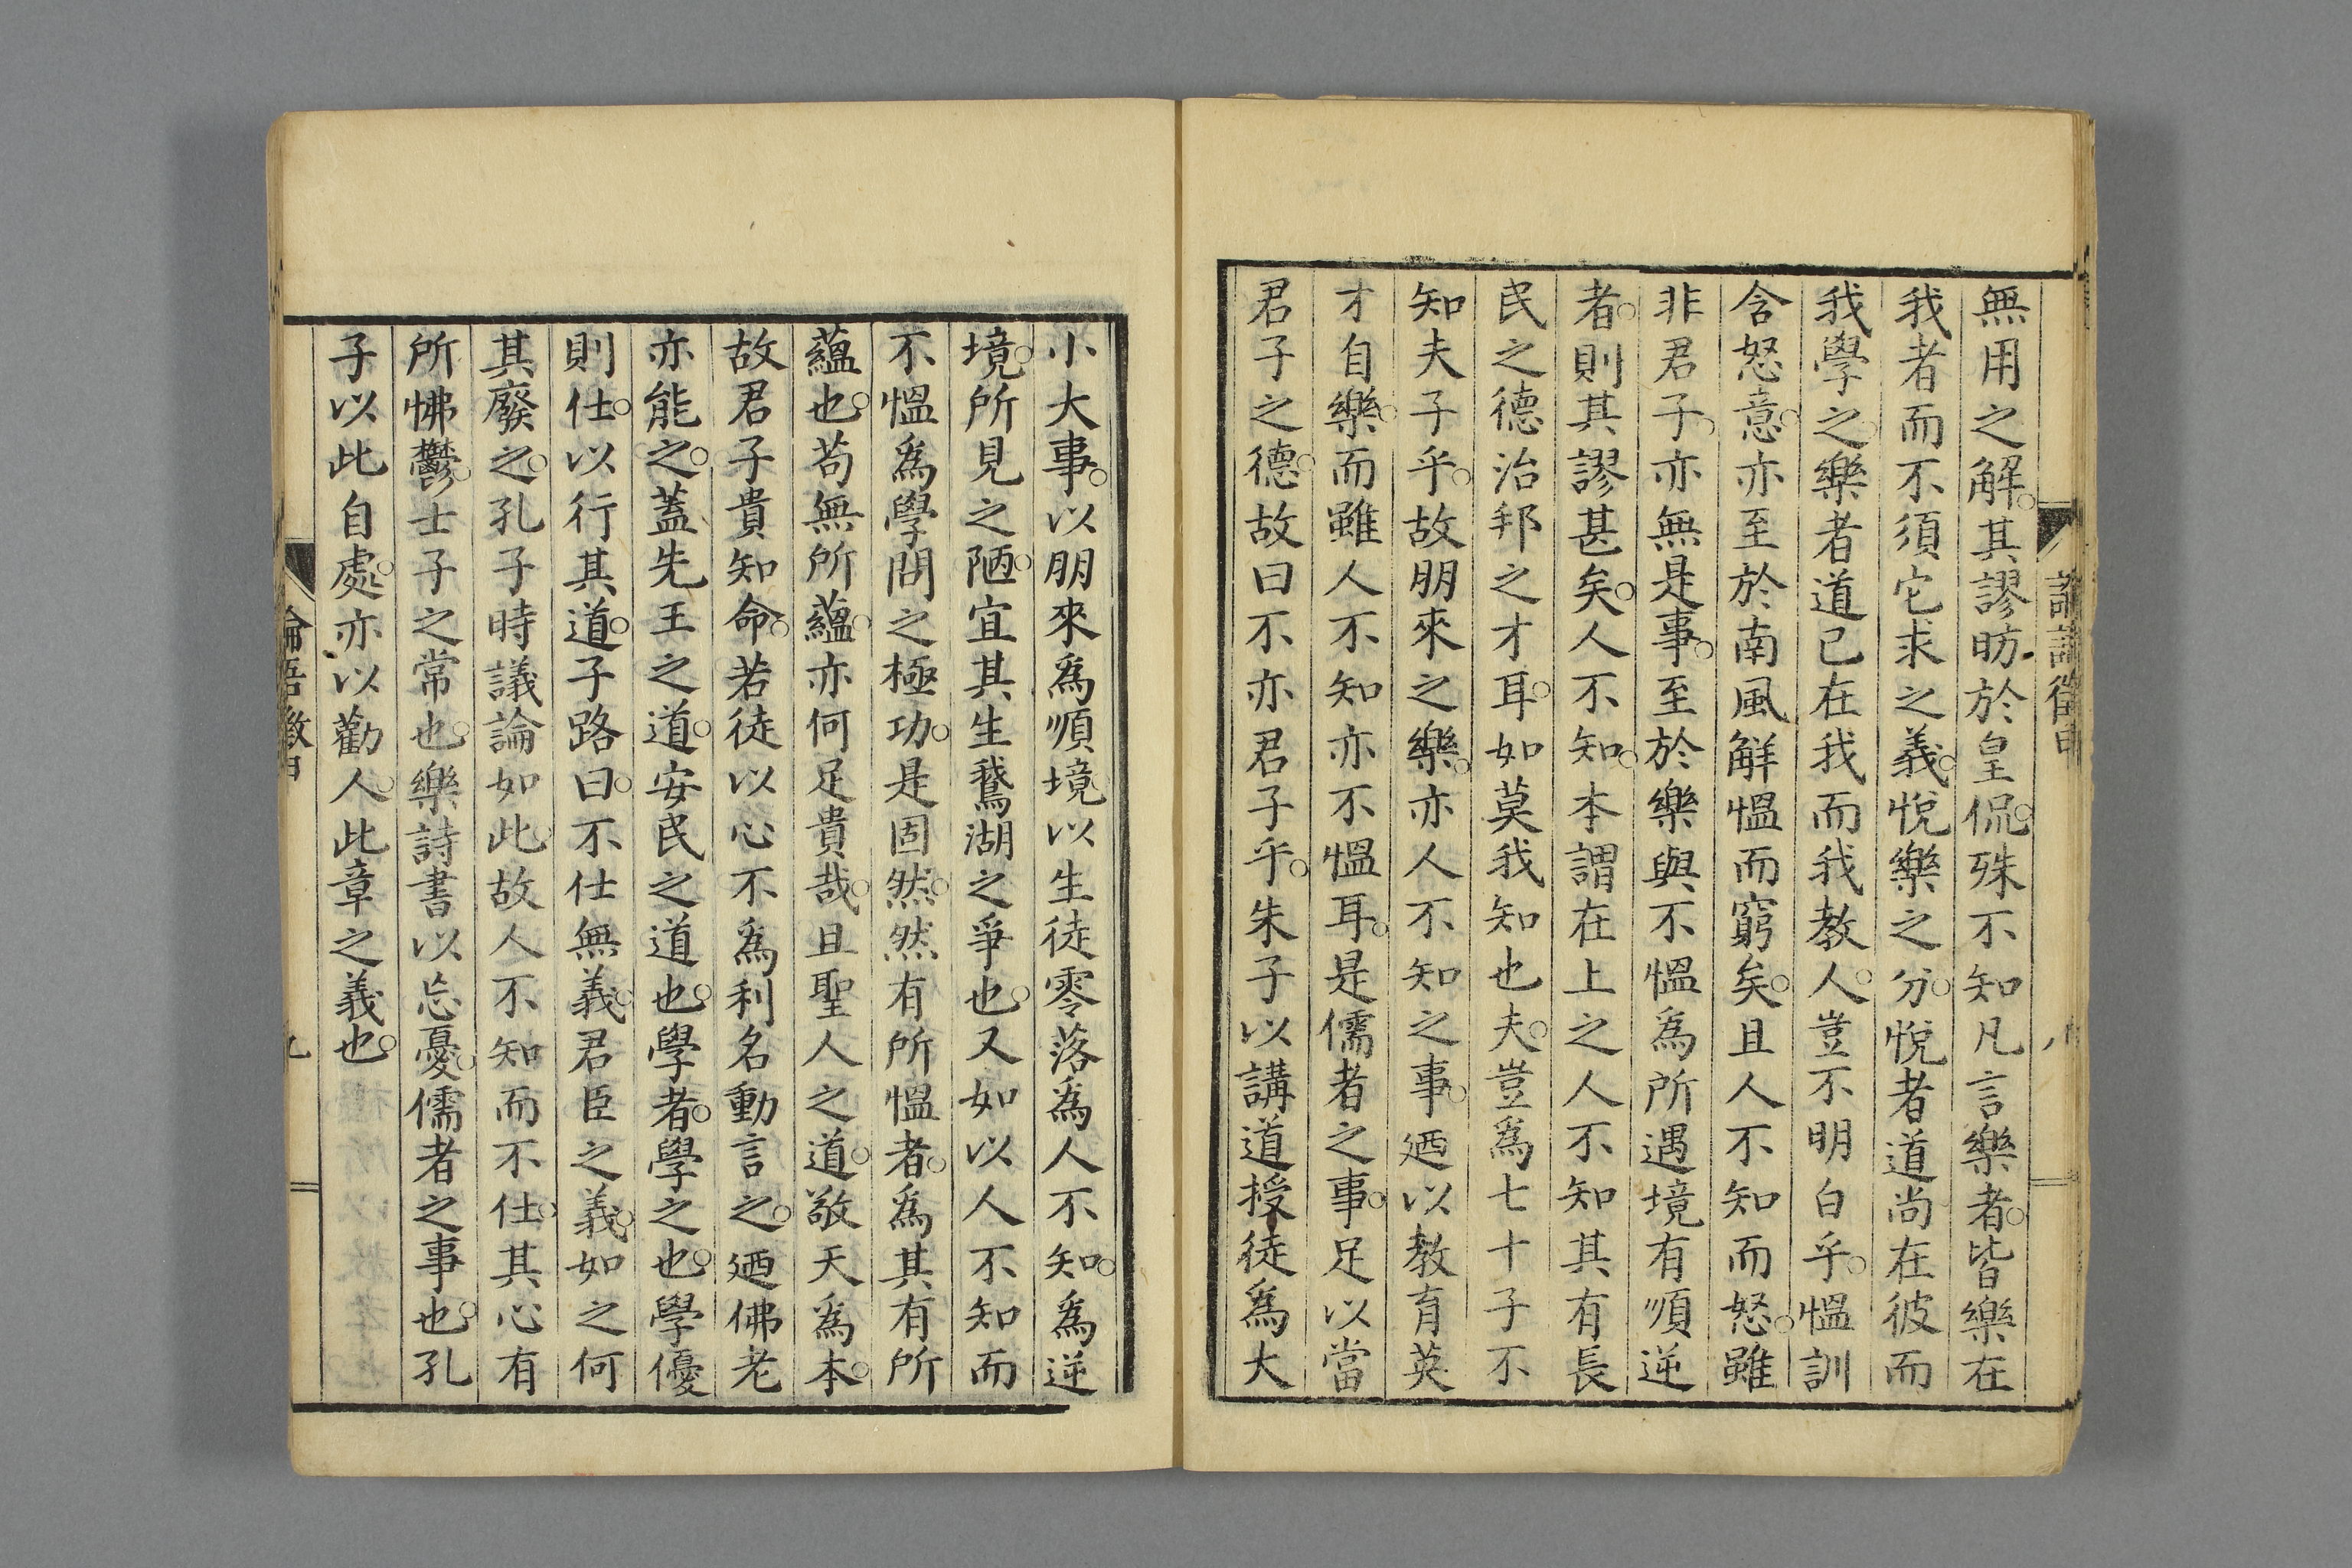 無用之解。其謬昉於皇侃。殊不知凡言樂者。皆樂在
我者而不須它求之義。悅樂之分。悅者道尚在彼而
我學之。樂者道已在我而我教人。豈不明白乎。慍訓
含怒意。亦至於南風解慍而窮矣。且人不知而怒。雖
非君子。亦無是事。至於樂與不慍為所遇境有順逆
者。則其謬甚矣。人不知。本謂在上之人不知其有長
民之德治邦之才耳。如莫我知也夫。豈為七十子不
知夫子乎。故朋來之樂。亦人不知之事。廼以教育英
才自樂。而雖人不知亦不慍耳。是儒者之事。足以當
君子之德。故曰不亦君子乎。朱子以講道授徒為大
小大事。以朋來為順境以生徒零落為人不知。為逆
境。所見之陋。宜其生鵞湖之爭也。又如以人不知而
不慍為學問之極功。是固然。然有所慍者。為其有所
蘊也。苟無所蘊。亦何足貴哉。且聖人之道。敬天為本。
故君子貴知命。若徒以心不為利名動言之。廼佛老
亦能之。蓋先王之道。安民之道也。學者。學之也。學優
則仕。以行其道。子路曰。不仕無義。君臣之義。如之何
其廢之。孔子時議論如此。故人不知而不仕。其心有
所怫鬱。士子之常也。樂詩書以忘憂。儒者之事也。孔
子以此自處。亦以勸人。此章之義也。